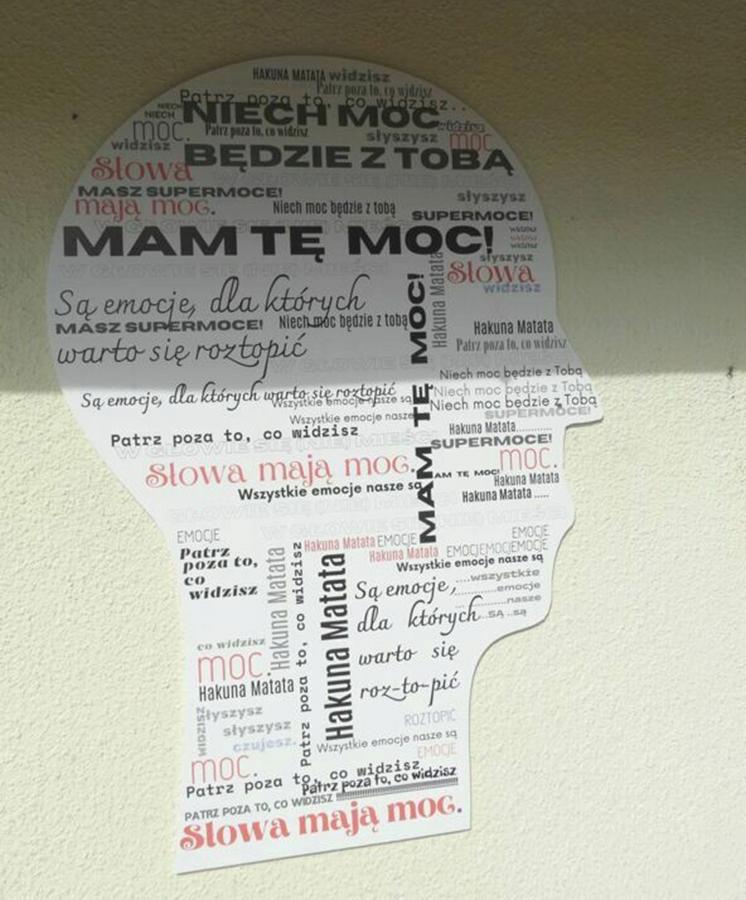 HAKUNA MATATA widzisz
Patrz poza to, co widzisz
Patrz poza to, co widzisz..
NIECH
NIECH
NIECH MOC
moc.
Patrz poza to, co widzisz
widzisz
słyszysz
moc
widzisz
BĘDZIE Z TOBĄ
Słowa
MASZ SUPERMOCE!
mają moc.
Niech moc będzie z tobą
słyszysz
SUPERMOCE!
MAM TĘ MOC!
W GŁOWIE SIĘ (NIE) MIEŚCI
słyszysz
Słowa
widzisz
Są emocje, dla których
MASZ SUPERMOCE!
Niech moc będzie z tobą
warto się roztopić
MAM TĘ MOC!
Hakuna Matata
Hakuna Matata
Patrz poza to, co widzisz
Niech moc będzie z Tobą
Niech moc będzie z Tobą
Niech moc będzie z Tobą
SUPERMOCE!
Są emocje, dla których warto się roztopić
Wszystkie emocje nasze są
Wszystkie emocje nasze
Patrz poza to, co widzisz
W GŁOWIE SIĘ (NIE) MIEŚCI
Hakuna Matata
SUPERMOCE!
moc.
Słowa mają moc.
AM TĘ MOC!
Hakuna Matata
Wszystkie emocje nasze są
Hakuna Matata .....
EMOCJE
Patrz
poza to,
co
widzisz
Hakuna Matata
Patrz poza to, co widzisz
Hakuna Matata
Hakuna Matata
EMOCJE
Hakuna Matata
EMOCJE
EMOCJEMOCJEMOCJE
Wszystkie emocje nasze są
....wszystkie
emocje
nasze
SĄ ..są
Są emocje,
dla których
warto się
roz-to-pić
co widzisz
moc.
Hakuna Matata
WIDZISZ
słyszysz
słyszysz
czujesz.
ROZTOPIĆ
Wszystkie emocje nasze są
EMOCJE
moc.
Patrz poza to, co widzisz
Patrz poza to, co widzisz
PATRZ POZA TO, CO WIDZISZ
Słowa mają moc.